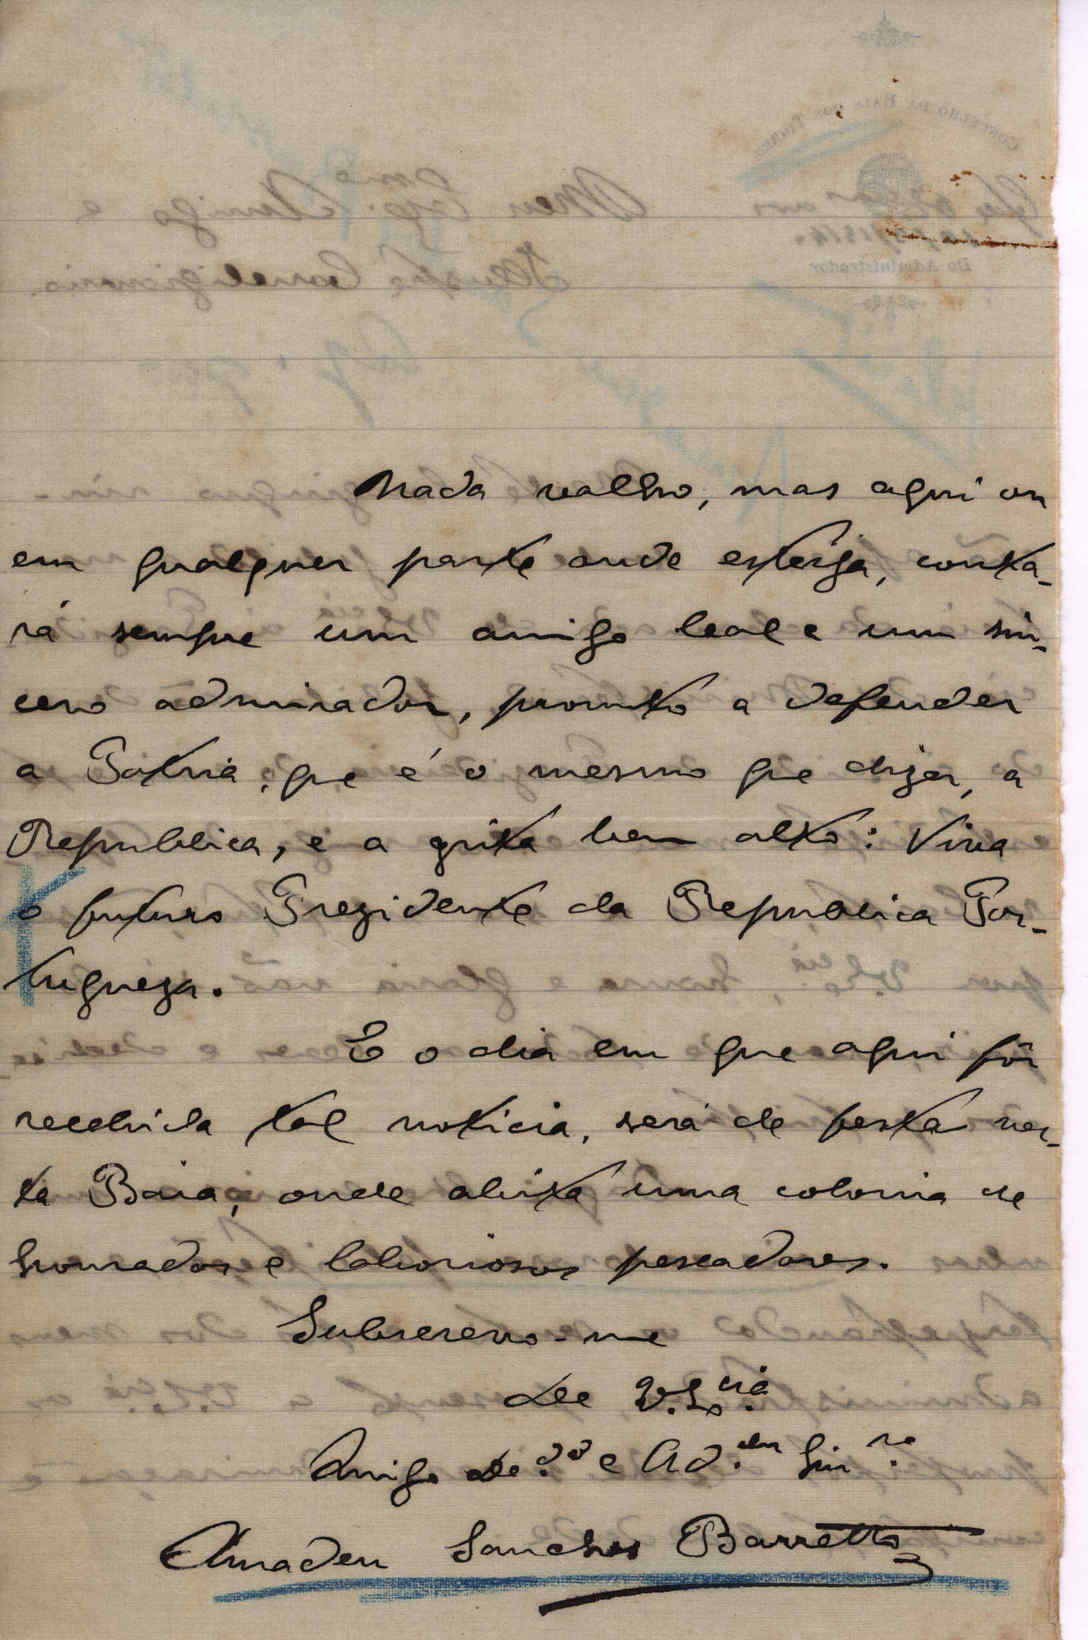 Nada valho, mas aqui ou
em qualquer parte onde esteija, conta-
rá sempre um amigo leal e um sin-
cero admirador, promto a defender
a Patria, que é o mesmo que dizer, a
Republica, e a grita bem alto: Viva
o futuro Prezidente da Republica Por-
tugueza.
E o dia em que aqui fôr
recebida tal noticia, será de festa nes-
ta Baia, onde abita uma colonia de
honrados e laboriosos pescadores.
Subscrevo-me
De V. Ex.cia
Amigo De.do e Ad.dor Sin.ro
Amadeu Sanches Barretto